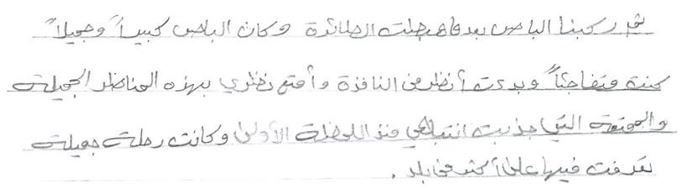 ثم ركبنا الباص بعدما هبطت الطائرة وكان الباص كبيراً وجميلاً
كنت متفاجئاً وبدءت أنظر من النافذة وأمتع نظري بهذه المناظر الجميلة
والممتعة التي جذبت انتباهي منذ اللحظة الأولى وكانت رحلة جميلة
تعرفت فيها على أكثر من بلد.